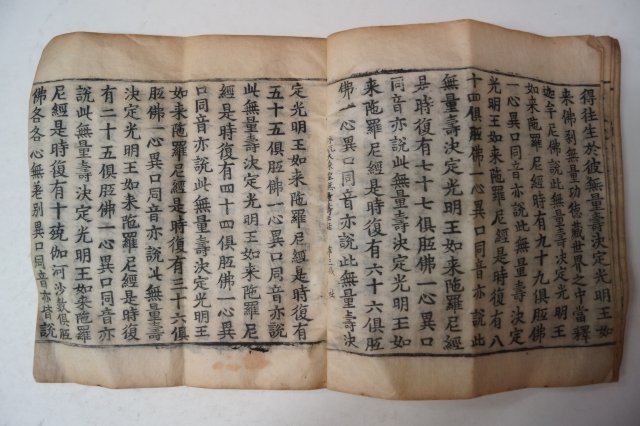 得往生於彼無量壽決定光明王如
来佛刹無量功德藏世界之中當釋
迦牟尼佛說此無量壽決定光明王
如来陁羅尼經時復有九十九俱胝佛
一心異口同音亦說此無量壽決定
光明王如来陁羅尼經是時復有八
十四俱胝佛一心異口同音亦說此
無量壽決定光明王如来陁羅尼經
是時復有七十七俱胝佛一心異口
同音亦說此無量壽決定光明王如
来陁羅尼經是時復有六十六俱胝
佛一心異口同音亦說此無量壽決
定光明王如来陁羅尼經是時復有
五十五俱胝佛一心異口同音亦說
此無量壽決定光明王如来陁羅尼
經是時復有四十四俱胝佛一心異
口同音亦說此無量壽決定光明王
如来陁羅尼經是時復有三十六俱
胝佛一心異口同音亦說此無量壽
決定光明王如来陁羅尼經是時復
有二十五俱胝佛一心異口同音亦
說此無量壽決定光明王如来陁羅
尼經是時復有十殑伽河沙數俱胝
佛各各心無差別異口同音亦皆說